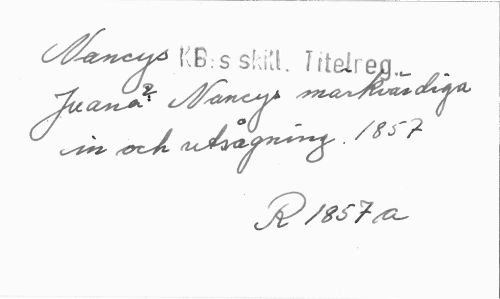 Nancys KB:s skill. Titelreg.
Juana? Nancys märkvärdiga
in och utsågning. 1857
R 1857 a